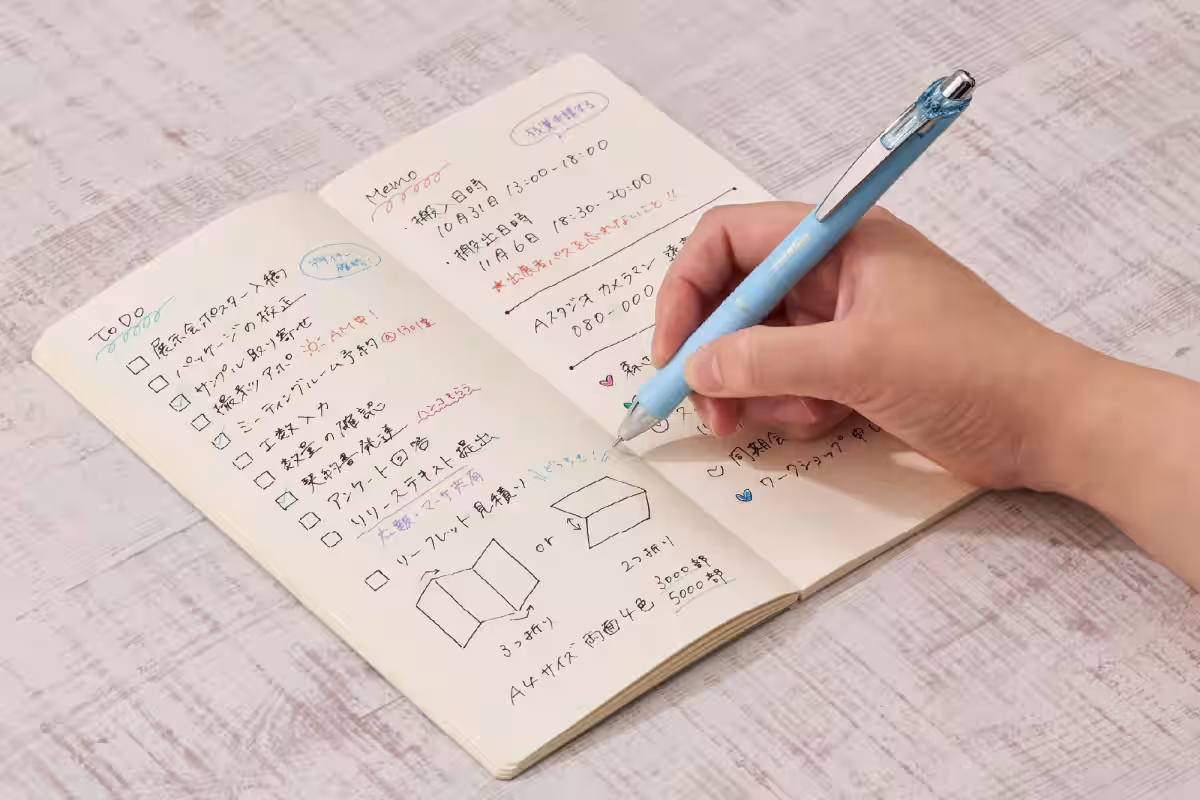 ToDo
展示会ポスター入稿
パッケージの校正
サンプル取り寄せ
撮影ツアポ AM中!
ミーティングルーム予約 @1301室
工数入力
数量の確認
契約書発送 ハンコもらう
アンケート回答
リリーステキスト提出
リーフレット見積り どっちも!
or
3つ折り
2つ折り
A4サイズ 両面4色 3000部
5000部
Memo
・搬入日時
10月31日 13:00-18:00
・搬出日時
11月6日 18:30-20:00
★出展者パスを忘れないこと!!
Aスタジオ カメラマン
080-000
同期会
ワークショップ